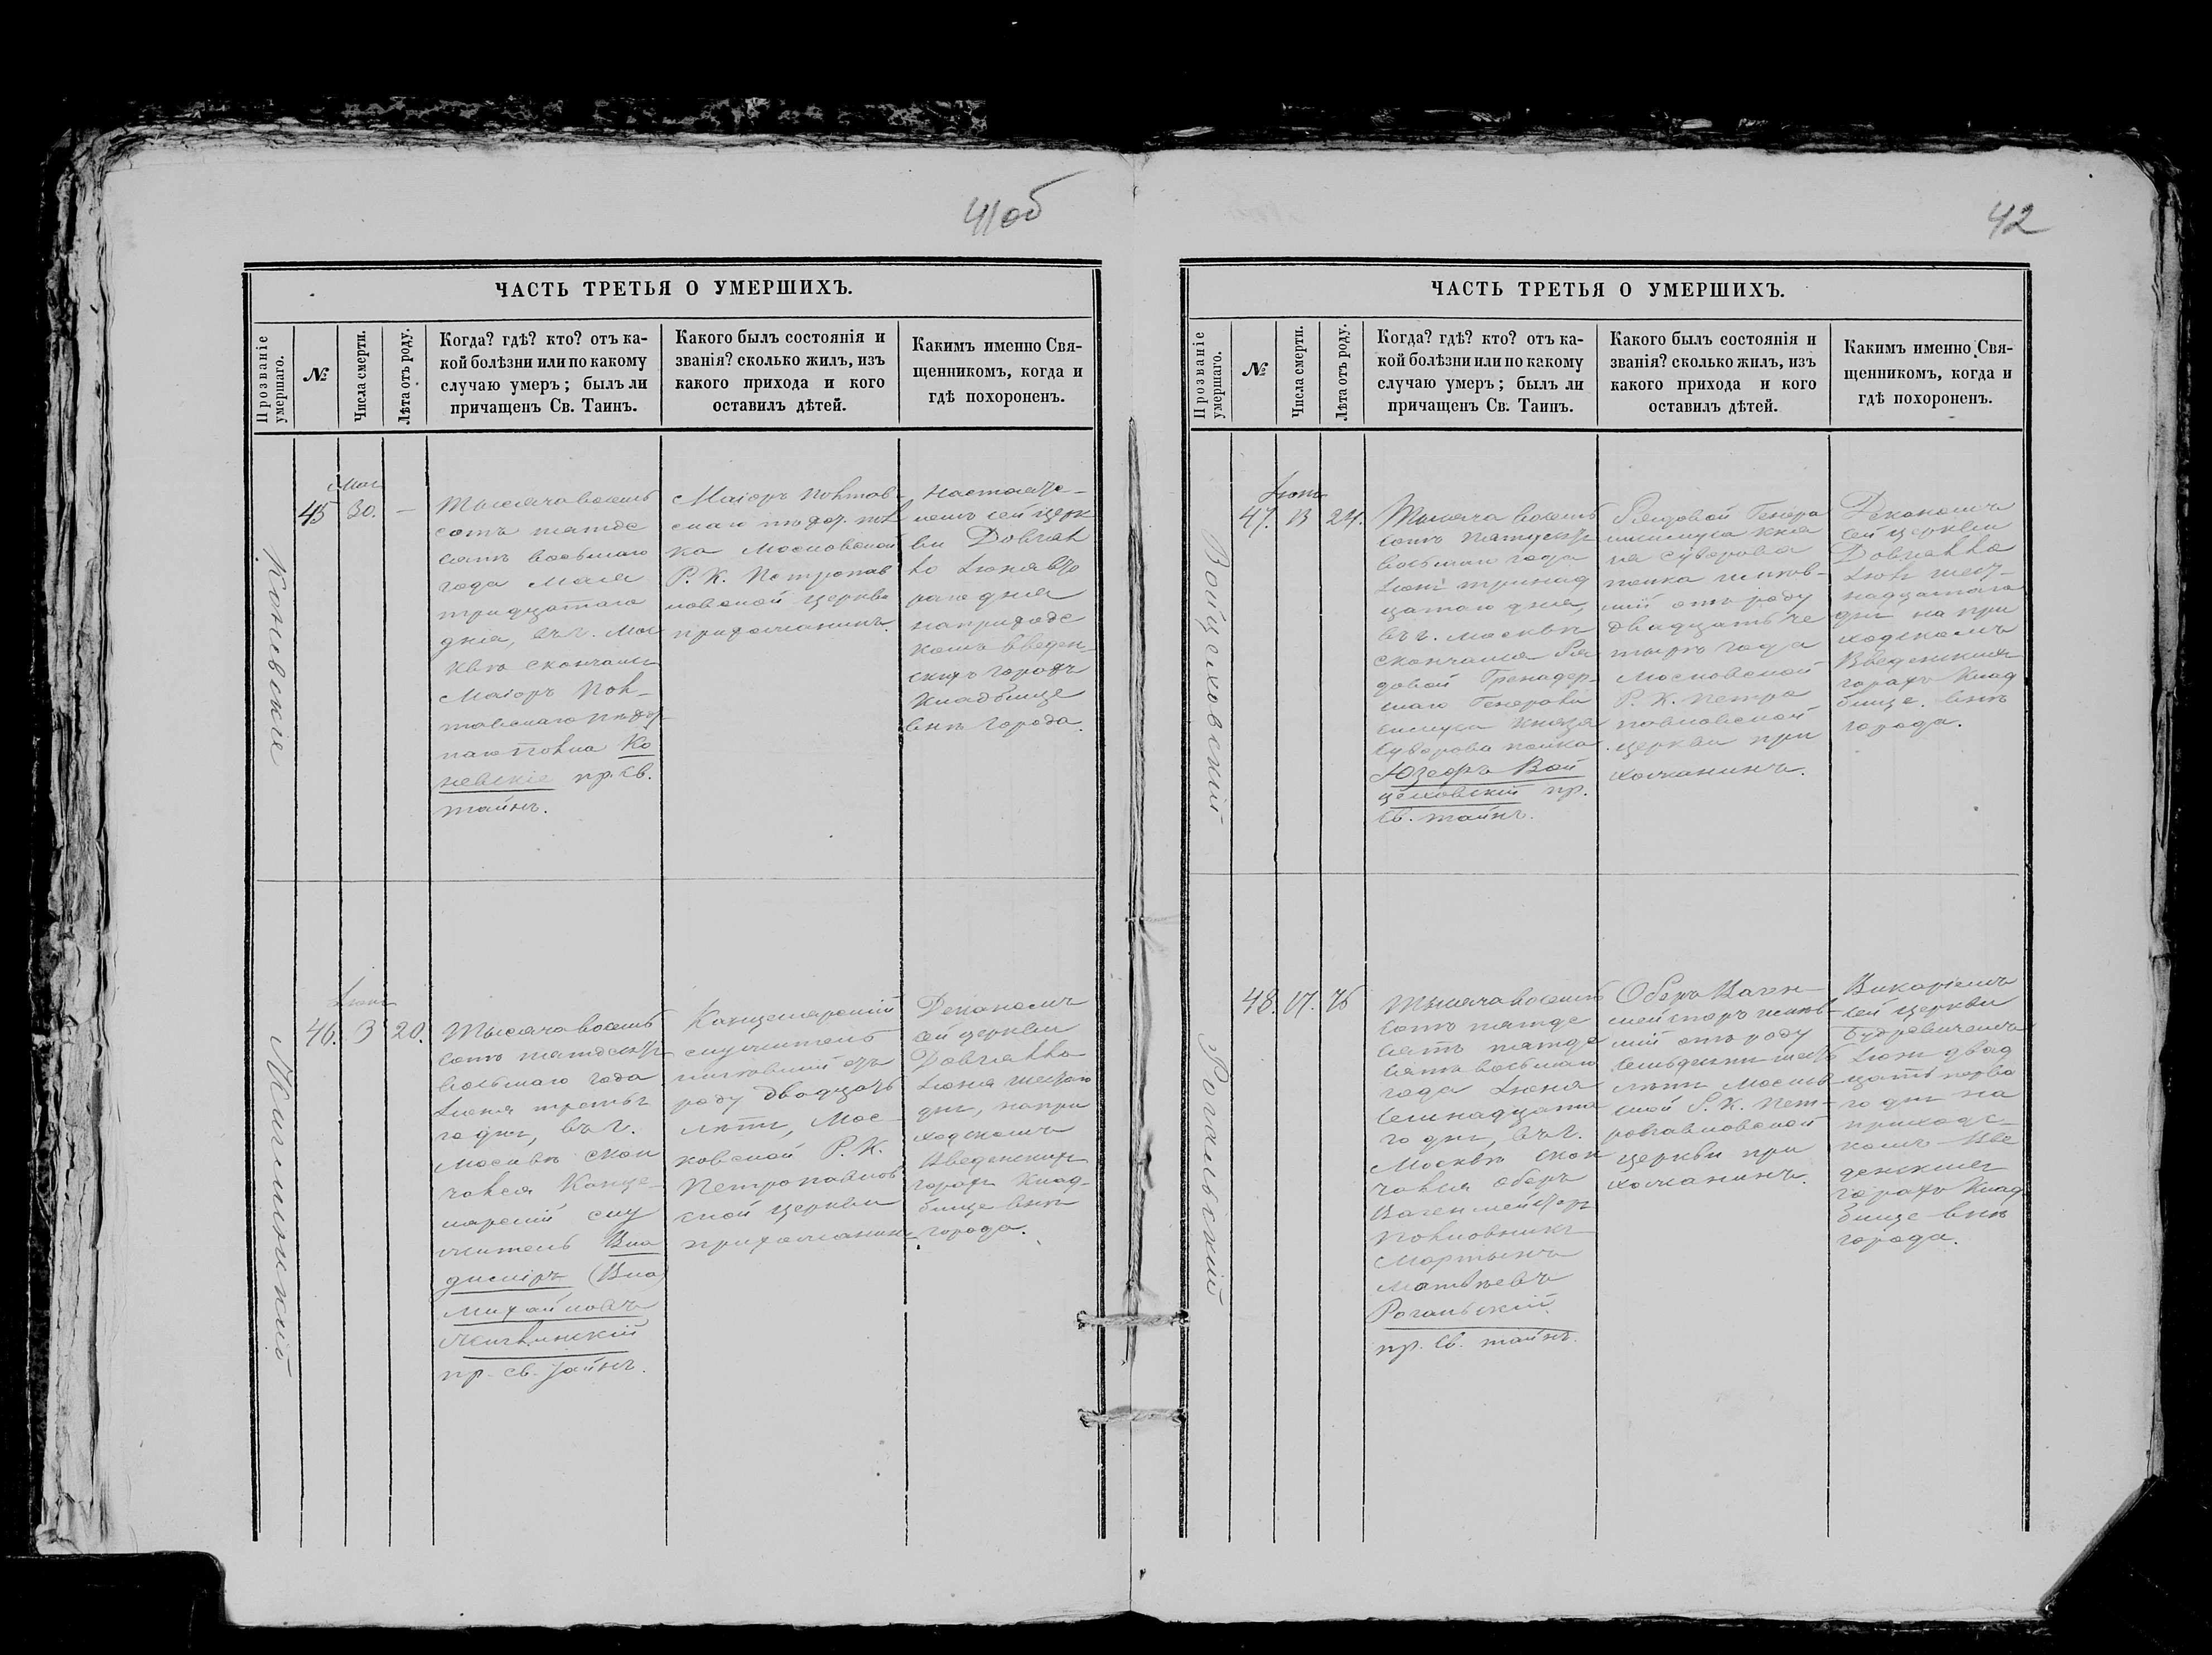 41об
ЧАСТЬ ТРЕТЬЯ О УМЕРШИХЪ.
Прозваніе
умершаго.
№
Числа смерти.
Лѣта отъ роду.
Когда? гдѣ? кто? отъ ка-
кой болѣзни или по какому
случаю умеръ; былъ ли
причащенъ Св. Таинъ.
Какого былъ состоянія и
званія? сколько жилъ, изъ
какого прихода и кого
оставилъ дѣтей.
Какимъ именно Свя-
щенникомъ, когда и
гдѣ похороненъ.
Коневскіе
Мая
45
30.
—
Тысяча восемь
сотъ пятьде
сятъ восьмаго
года Мая
тридцатаго
дня, въ г. Мос
квѣ скончался
Маіоръ Пол-
тавскаго
Ко
невскіе пр. Св.
тайнъ.
Маіоръ Полтав-
скаго
ка Московской
Р. К. Петропав
ловской церкви
прихожанинъ.
Настояте-
лемъ сей церк
ви Dobriall
Іюня
раго дня
на приходс
комъ Введен-
скихъ горахъ
Кладбище
внѣ города.
Іюнь
46.
3
20.
Тысяча восемь
сотъ
восьмаго года
Іюня третья
го дня, въ г.
Москвѣ скон
чался Канце-
лярскій слу
житель Вла
диміръ
Михайловъ
пр. Св. Тайнъ.
Канцелярскій
служитель
жившій отъ
роду двадцать
лѣтъ, Мос-
ковской Р. К.
Петропавлов
ской церкви
прихожанин
Деканомъ
сей церкви
Іюня
дня, на при
ходскомъ
Введенскихъ
горахъ Клад-
бище внѣ
города.
42
ЧАСТЬ ТРЕТЬЯ О УМЕРШИХЪ.
Прозваніе
умершаго.
№
Числа смерти.
Лѣта отъ роду.
Когда? гдѣ? кто? отъ ка-
кой болѣзни или по какому
случаю умеръ; былъ ли
причащенъ Св. Таинъ.
Какого былъ состоянія и
званія? сколько жилъ, изъ
какого прихода и кого
оставилъ дѣтей.
Какимъ именно Свя-
щенникомъ, когда и
гдѣ похороненъ.
Войцеховскій
Іюнь
47.
13
24.
Тысяча восемь
сотъ
восьмаго года
Іюня тринад
цатаго дня,
въ г. Москвѣ
скончался Ря
довой Гренадер-
скаго Генерали
симуса Князя
Суворова полка
Юзефъ Вой
цеховскій пр.
Св. тайнъ.
Рядовой Генера
лисимуса Кня
зя Суворова
полка жив-
шій отъ роду
двадцать че
тыре года
Московской
Р. К. Петро
павловской
церкви при
хожанинъ.
Деканомъ
сей церкви
надцатаго
дня на при
ходскомъ
Введенскихъ
горахъ Клад
бище внѣ
города.
Рогальскій
48.
17.
76
Тысяча восемь
сотъ пятьде
сятъ пятьде
сятъ восьмаго
года Іюня
семнадцата
го дня, въ г.
Москвѣ скон
чался Оберъ
Вагенмейстеръ
Полковникъ
Мартынъ
Матвѣевъ
Рогальскій
пр. Св. тайнъ.
Оберъ Ваген-
мейстеръ жив-
шій отъ роду
лѣтъ Москов-
ской Р. К. Пет-
ропавловской
церкви при
хожанинъ.
Викаріемъ
сей церкви
Іюня двад
цать перва
го дня на
приходс-
комъ Вве
денскихъ
горахъ Клад
бище внѣ
города.